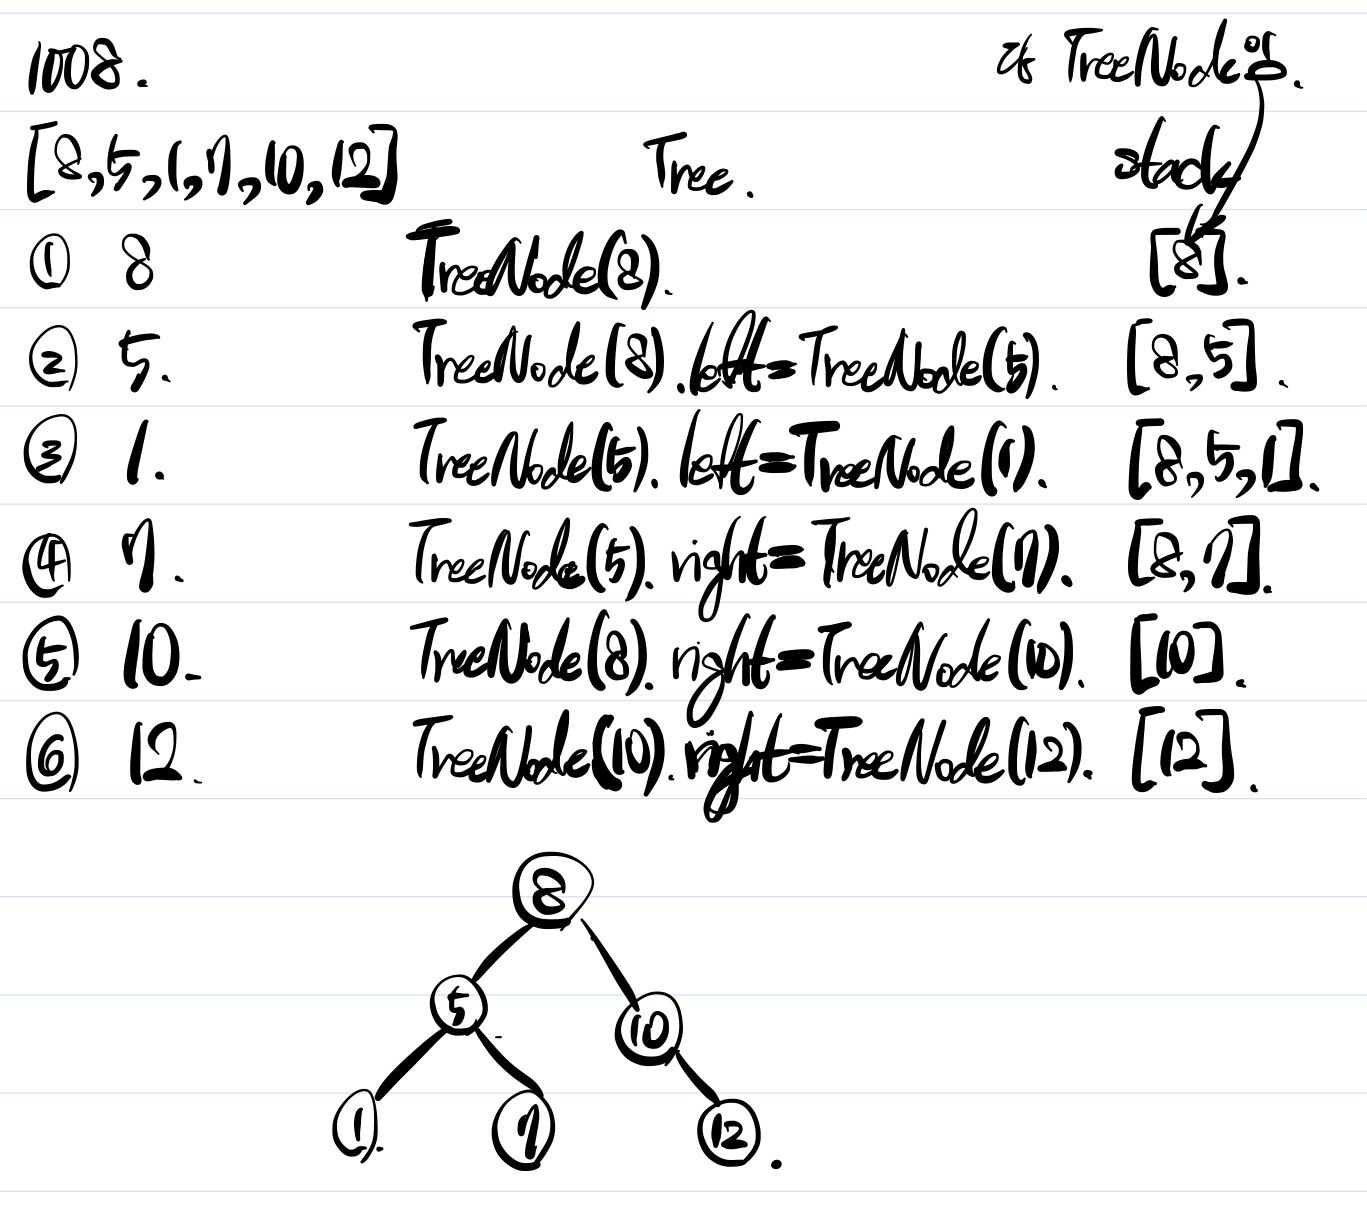 1008. TreeNode임.
[8,5,1,7,10,12] Tree. stack
① 8 TreeNode(8). [8].
② 5. TreeNode(8).left=TreeNode(5). [8,5].
③ 1. TreeNode(5).left=TreeNode(1). [8,5,1].
④ 7. TreeNode(5).right=TreeNode(7). [8,7].
⑤ 10. TreeNode(8).right=TreeNode(10). [10].
⑥ 12. TreeNode(10).right=TreeNode(12). [12].
8
5 10
1. 7 12.